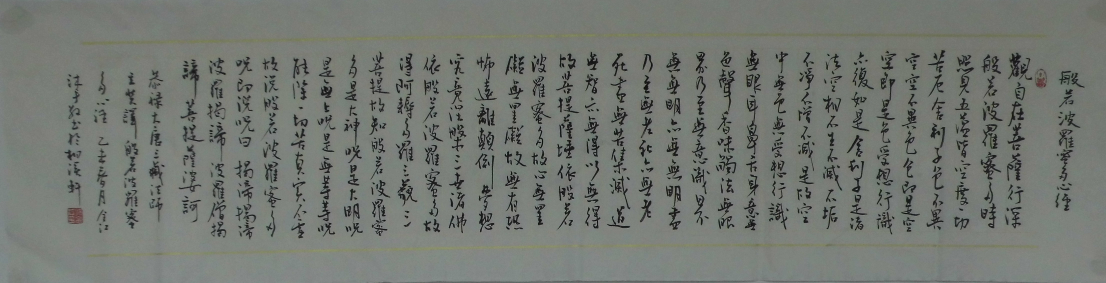 般若波羅蜜多心經
觀自在菩薩行深
般若波羅蜜多時
照見五蘊皆空度一切
苦厄舍利子色不異
空空不異色色即是空
空即是色受想行識
亦復如是舍利子是諸
法空相不生不滅不垢
不淨不增不減是故空
中無色無受想行識
無眼耳鼻舌身意無
色聲香味觸法無眼
界乃至無意識界
無無明亦無無明盡
乃至無老死亦無老
死盡無苦集滅道
無智亦無得以無所得
故菩提薩埵依般若
波羅蜜多故心無罣
礙無罣礙故無有恐
怖遠離顛倒夢想
究竟涅槃三世諸佛
依般若波羅蜜多故
得阿耨多羅三藐三
菩提故知般若波羅蜜
多是大神咒是大明咒
是無上咒是無等等咒
能除一切苦真實不虛
故說般若波羅蜜多
咒即說咒曰揭諦揭諦
波羅揭諦波羅僧揭
諦菩提薩婆訶
恭錄大唐三藏法師
玄奘譯般若波羅蜜
多心經